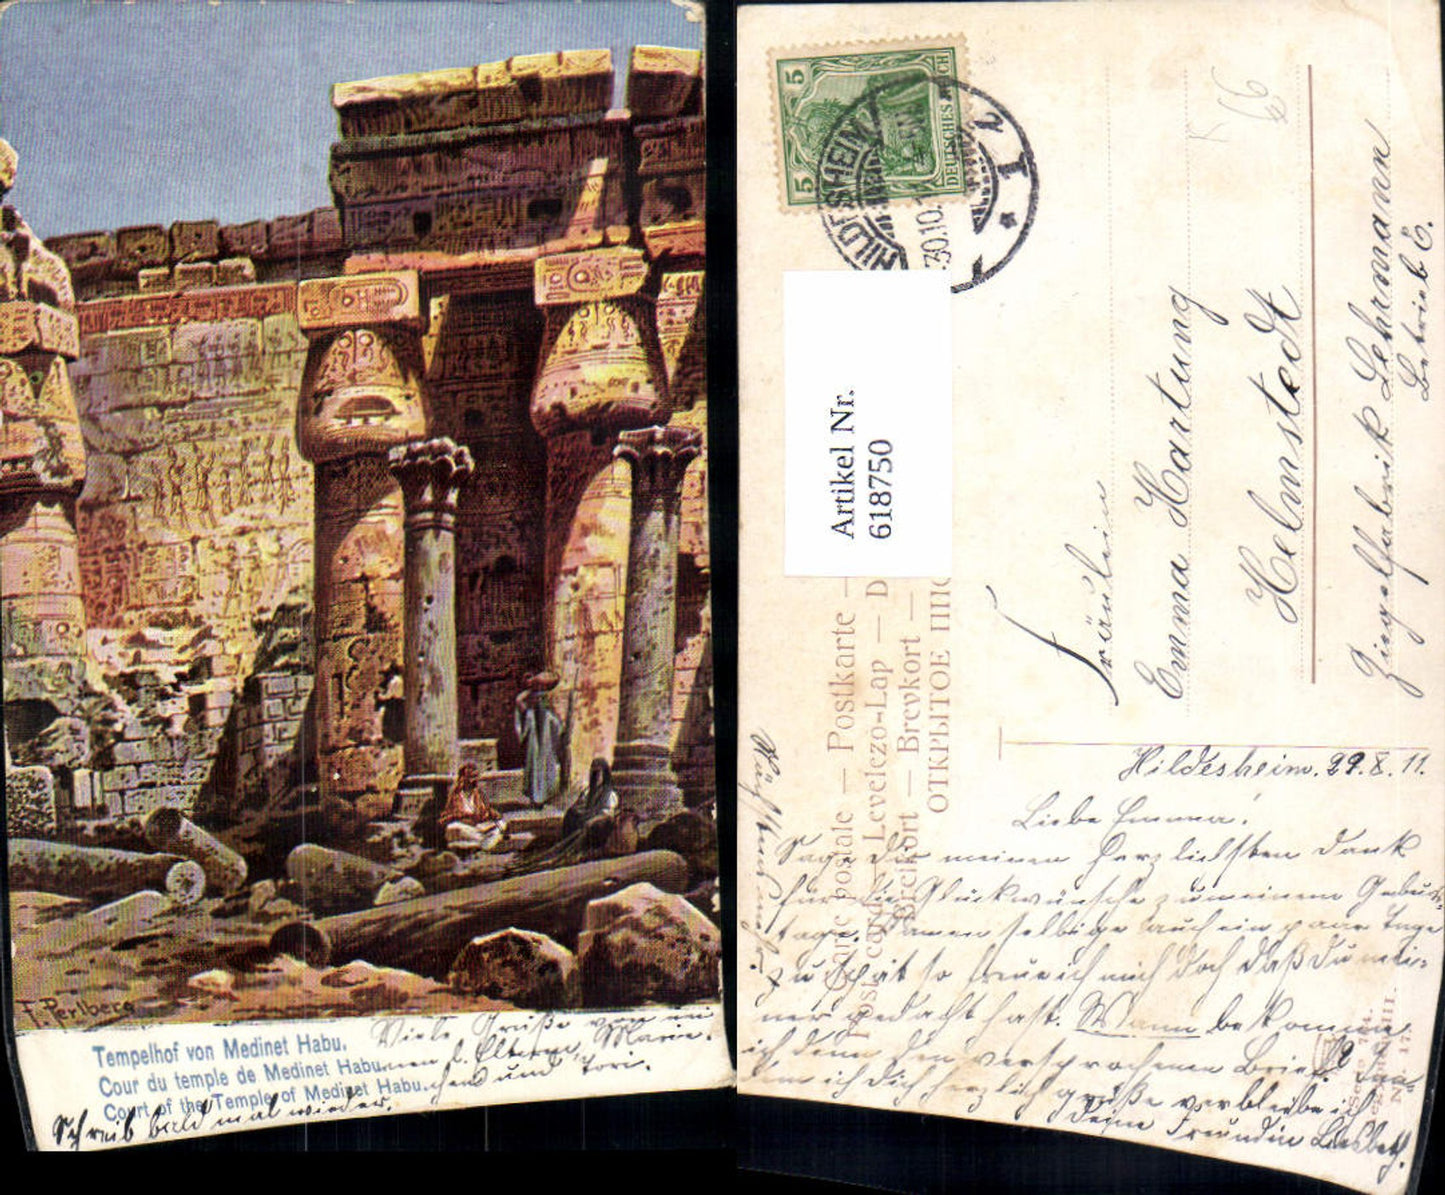 F. Perlberg
Tempelhof von Medinet Habu.
Cour du temple de Medinet Habu.
Court of the Temple of Medinet Habu.
Viele Grüße von mei-
nen l. Eltern, Marie-
chen und Dori.
Schreib bald mal wieder.
5 5
DEUTSCHES REICH
HILDESHEIM
30.10.
1
Artikel Nr.
618750
Carte postale — Postkarte —
Post card — Levelező-Lap — D
Briefkort — Brevkort —
ОТКРЫТОЕ ПИС
Fräulein
Emma Hartung
Helmstedt
Ziegelfabrik Lehrmann
Betrieb E.
Hildesheim. 29.8.11.
Liebe Emma!
Sage Dir meinen herzlichsten Dank
für die Glückwünsche zu meinem Geburts-
tage. Kamen selbige auch ein paar Tage
zu spät so freue ich mich doch daß Du mei-
ner gedacht hast. Wann bekomme
ich denn den versprochenen Brief?
Indem ich Dich herzlich grüße verbleibe ich
Deine Freundin Liesbeth.
Serie 764.
Aegypten III.
No. 17.